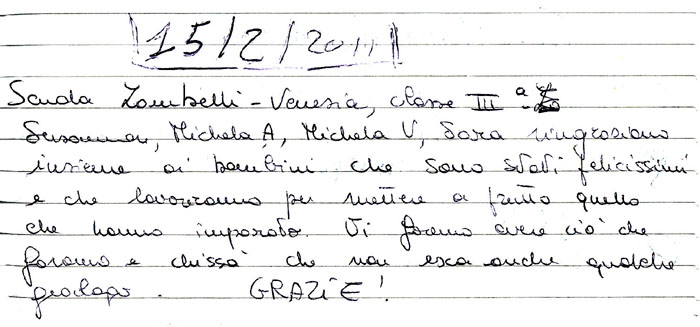 15/2/2011
Scuola Zambelli - Venezia, classe III a
Susanna, Michela A, Michela V, Sara ringraziano
insieme ai bambini che sono stati felicissimi
e che lavoreranno per mettere a frutto quello
che hanno imparato. Vi faremo avere ciò che
faremo e chissà che non esca anche qualche
geologo. GRAZIE!